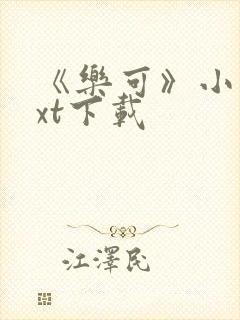 《樂可》小
xt下載
江澤民